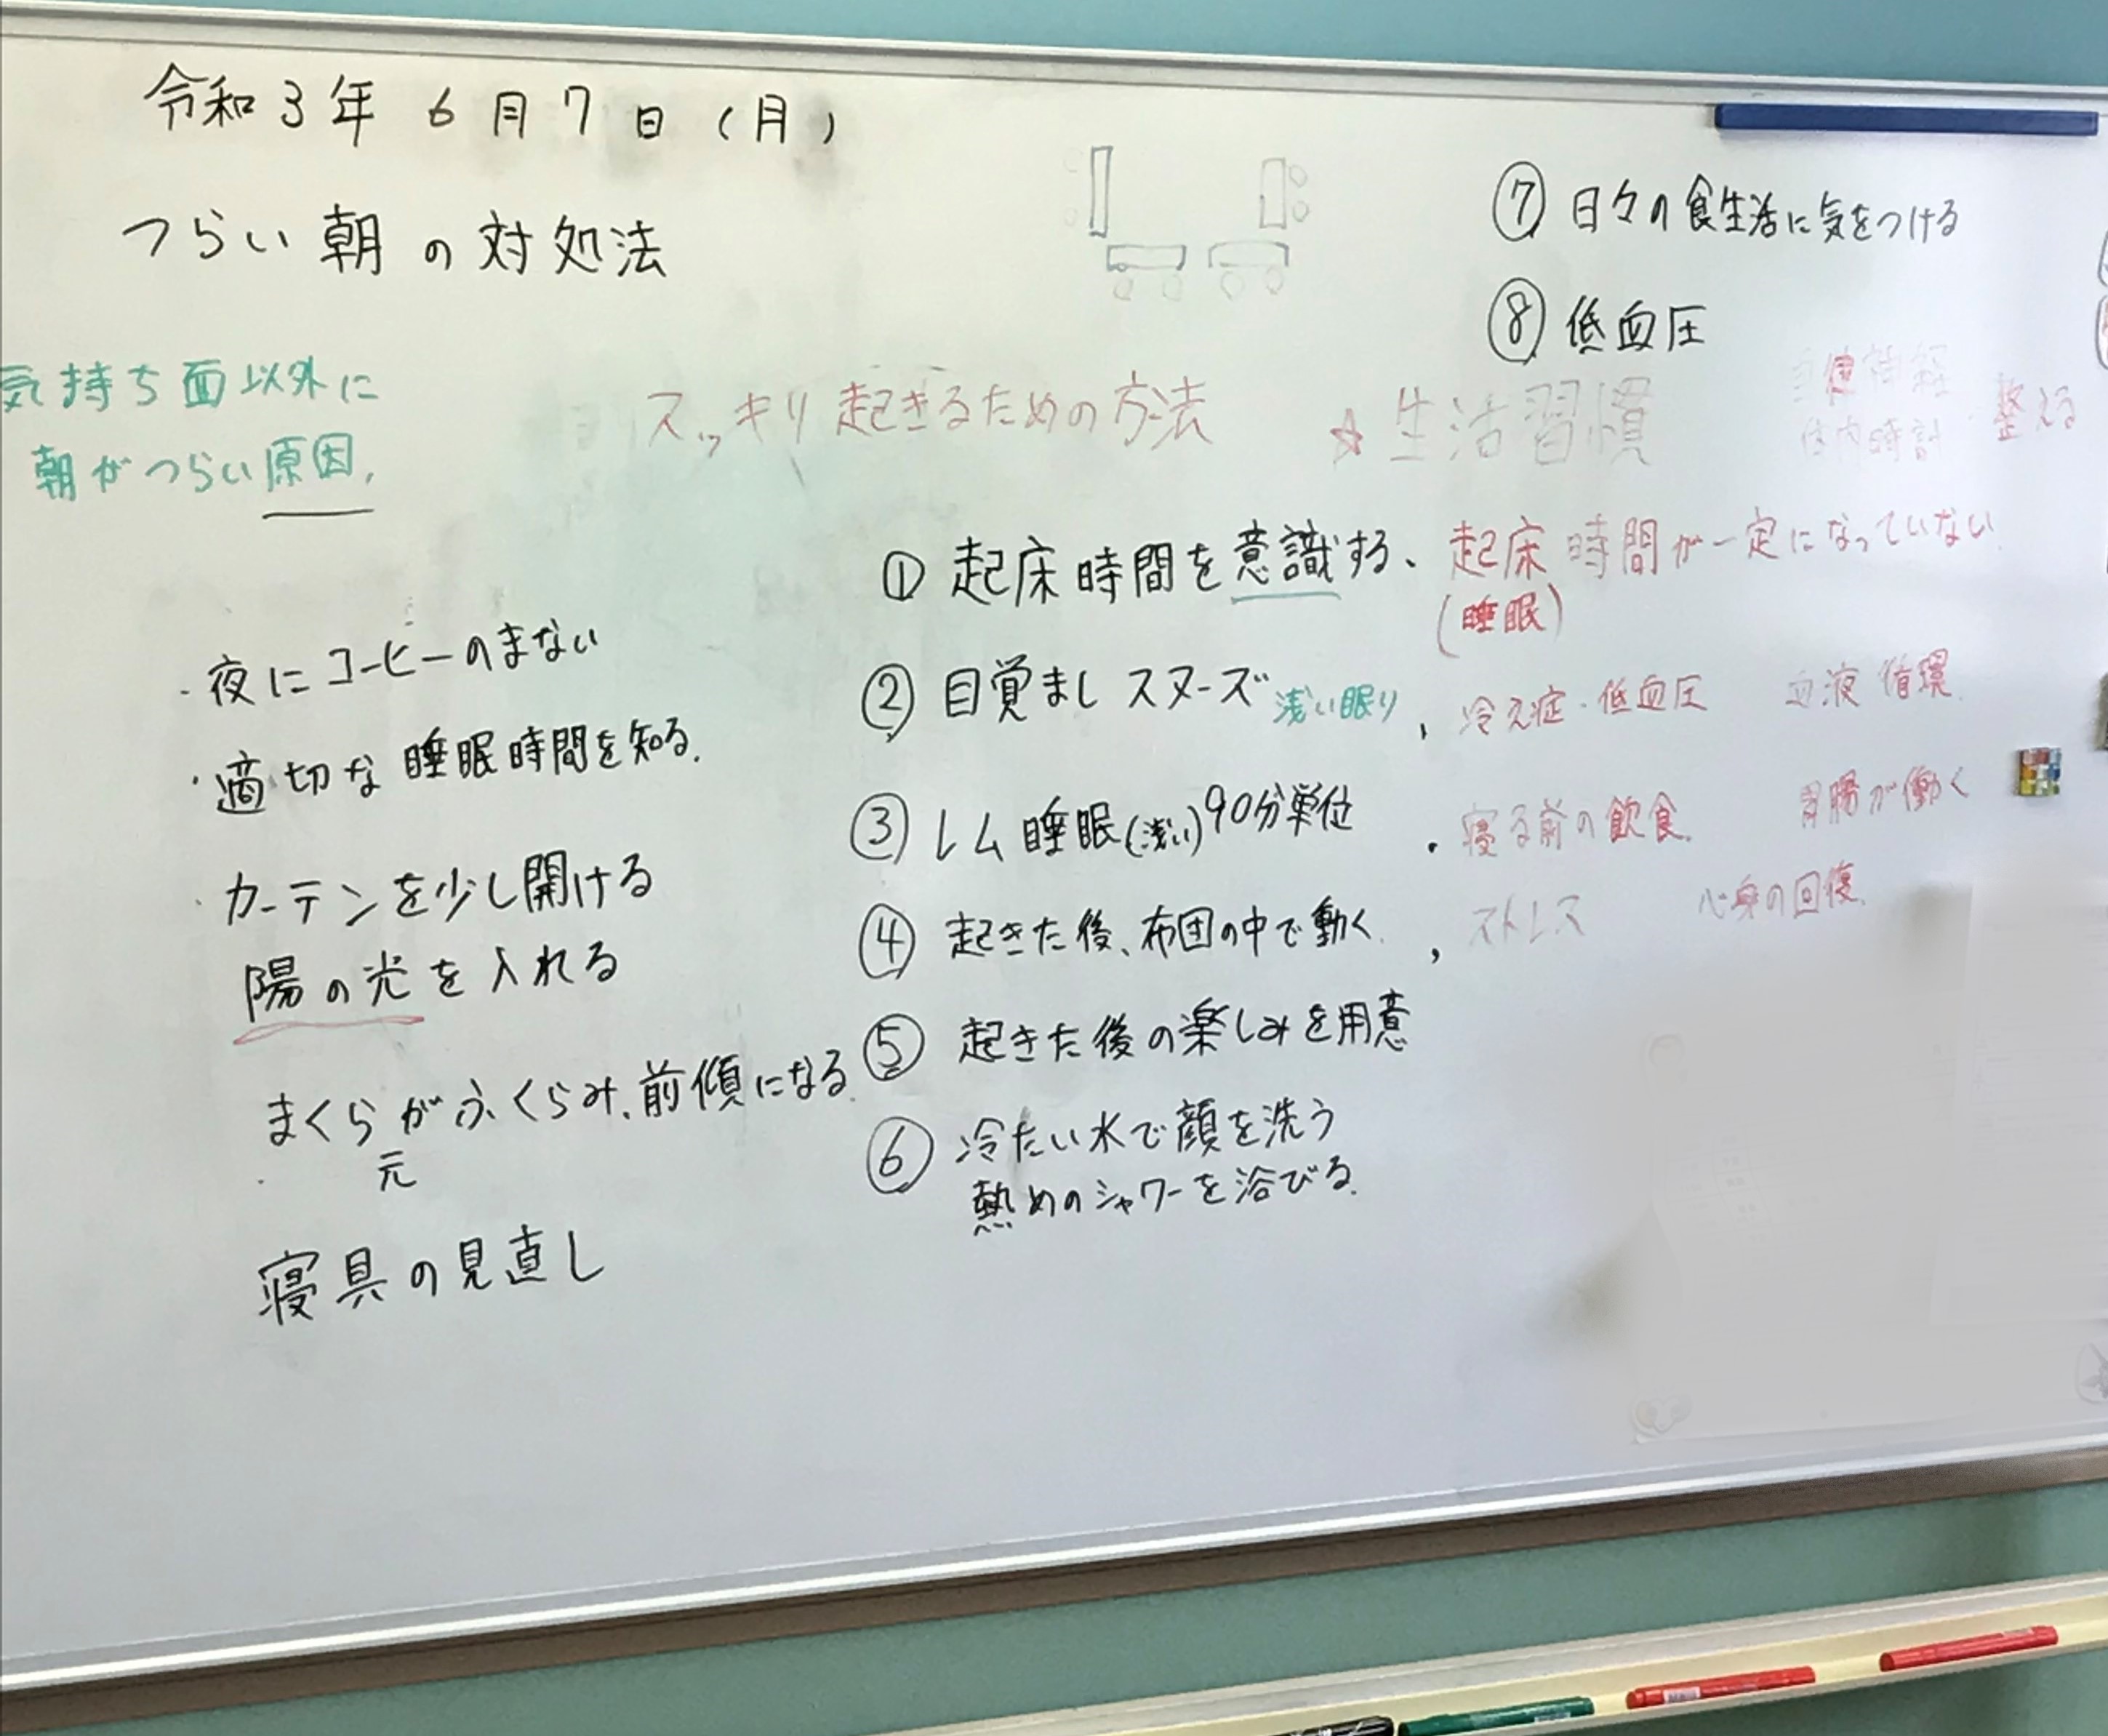 令和3年 6月7日(月)
つらい朝の対処法
気持ち面以外に
朝がつらい原因,
・夜にコーヒーのまない
・適切な睡眠時間を知る.
・カーテンを少し開ける
陽の光を入れる
まくらがふくらみ、前傾になる.
元
寝具の見直し
スッキリ起きるための方法
① 起床時間を意識する、
② 目覚まし スヌーズ 浅い眠り
③ レム睡眠(浅い)90分単位
④ 起きた後、布団の中で動く.
⑤ 起きた後の楽しみを用意
⑥ 冷たい水で顔を洗う
熱めのシャワーを浴びる.
⑦ 日々の食生活に気をつける
⑧ 低血圧
☆生活習慣
神経
体内時計
整える
起床時間が一定になっていない.
(睡眠)
冷え症・低血圧 血液循環.
・寝る前の飲食. 胃腸が働く
ストレス 心身の回復.